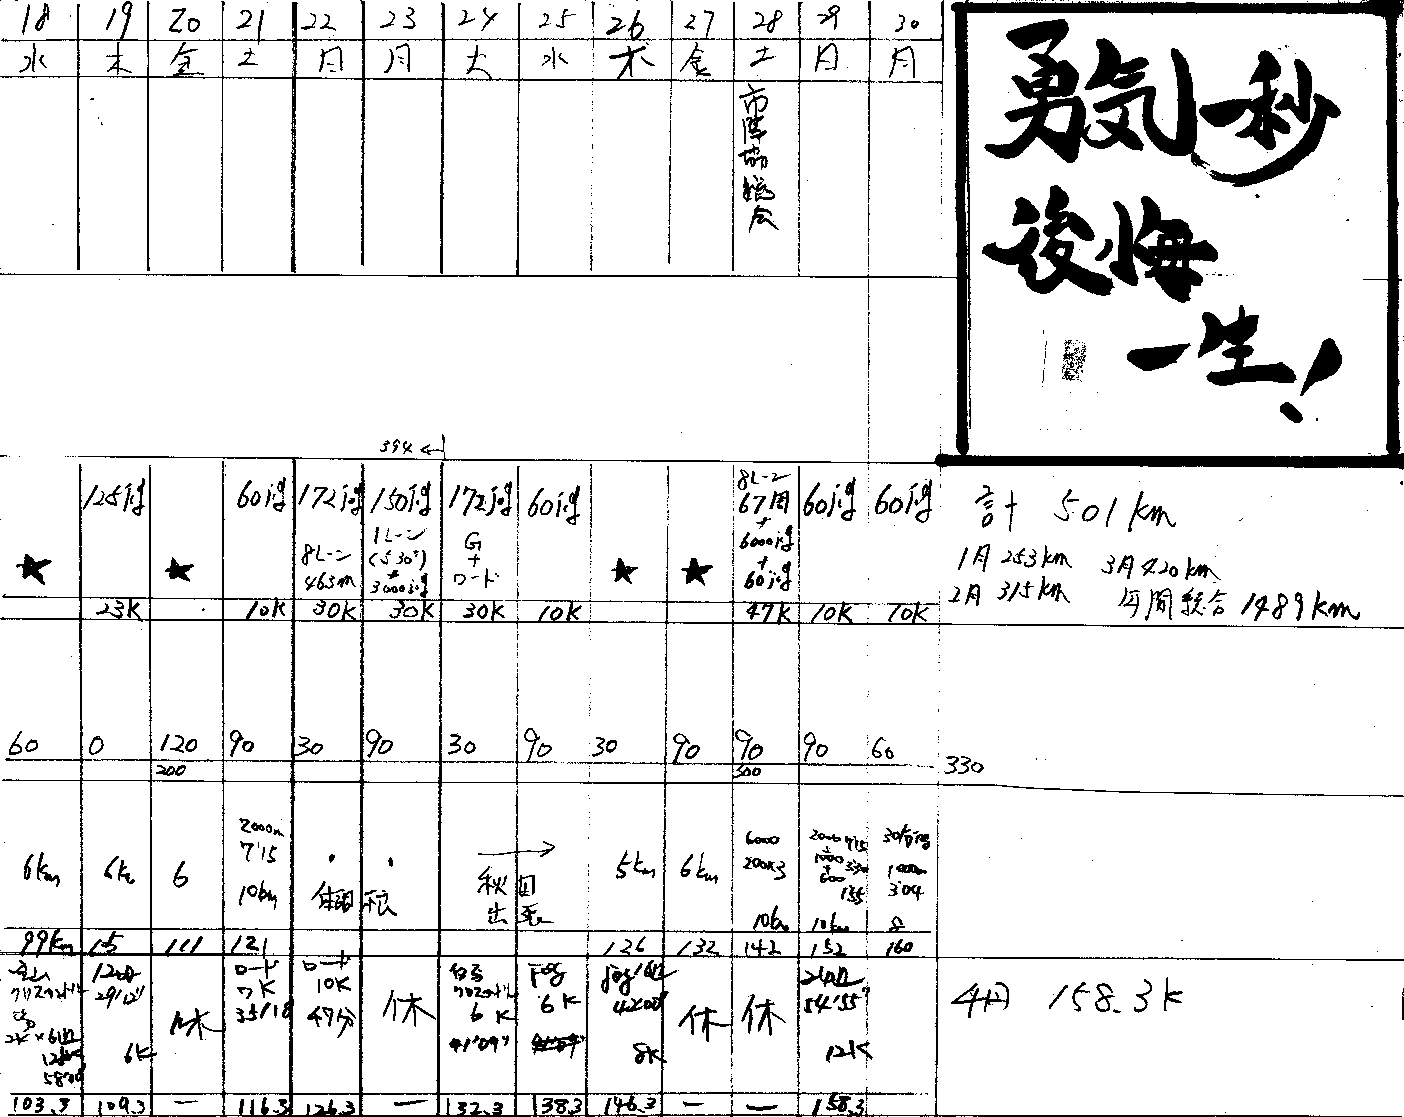 18 19 20 21 22 23 24 25 26 27 28 29 30
水 木 金 土 日 月 火 水 木 金 土 日 月
市陸協総会
勇気一秒
後悔
一生!
394 ←
125jog 60jog 172jog 150jog 172jog 60jog 8レーン 60jog 60jog
67周
+
6000jog
+
60jog
8レーン
463m
1レーン
(530)
+
3000jog
G
+
ロード
★ ★ ★ ★
23K 10K 30K 30K 30K 10K 47K 10K 10K
計 501km
1月 253km 3月 420km
2月 315km 年間総合 1489km
60 0 120 90 30 90 30 90 30 90 90 90 60
200 300
330
6km 6km 6 2000m
7'15
10km
→
秋田
出張
5km 6km 6000
200×3
10km
2000 7'15
+
1000
+
600
10km
1000m
3'04
8
99km 111 121 126 132 142 152 160
クロスカントリー
2K×6
120
6K
休
ロード
7K
ロード
10K
47分
休
クロスカントリー
6K
41'09"
jog
6K
jog
8K
休 休
12K
4月 158.3K
103.3 109.3 — 116.3 126.3 — 132.3 138.3 146.3 — — 158.3